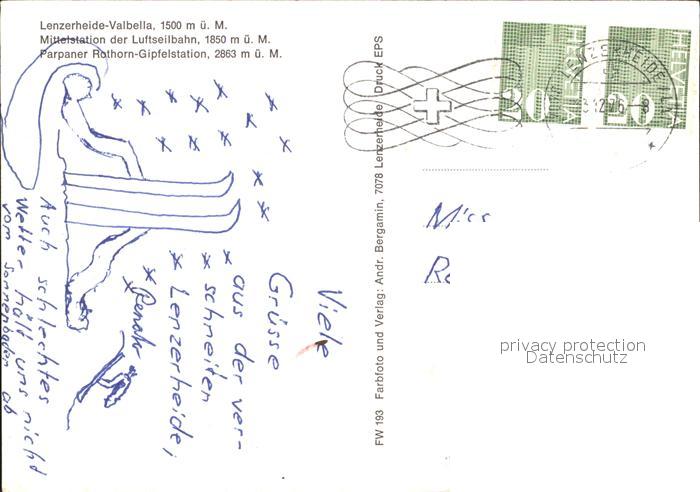 Lenzerheide-Valbella, 1500 m ü. M.
Mittelstation der Luftseilbahn, 1850 m ü. M.
Parpaner Rothorn-Gipfelstation, 2863 m ü. M.
Viele
Grüsse
aus der ver-
schneiten
Lenzerheide,
Renate
Auch schlechtes
Wetter hält uns nicht
vom Sonnenbaden ab
FW 193 Farbfoto und Verlag: Andr. Bergamin, 7078 Lenzerheide Druck EPS
HELVETIA
20
HELVETIA
50
LENZERHEIDE / LAI
12.76.-8
Miss
privacy protection
Datenschutz